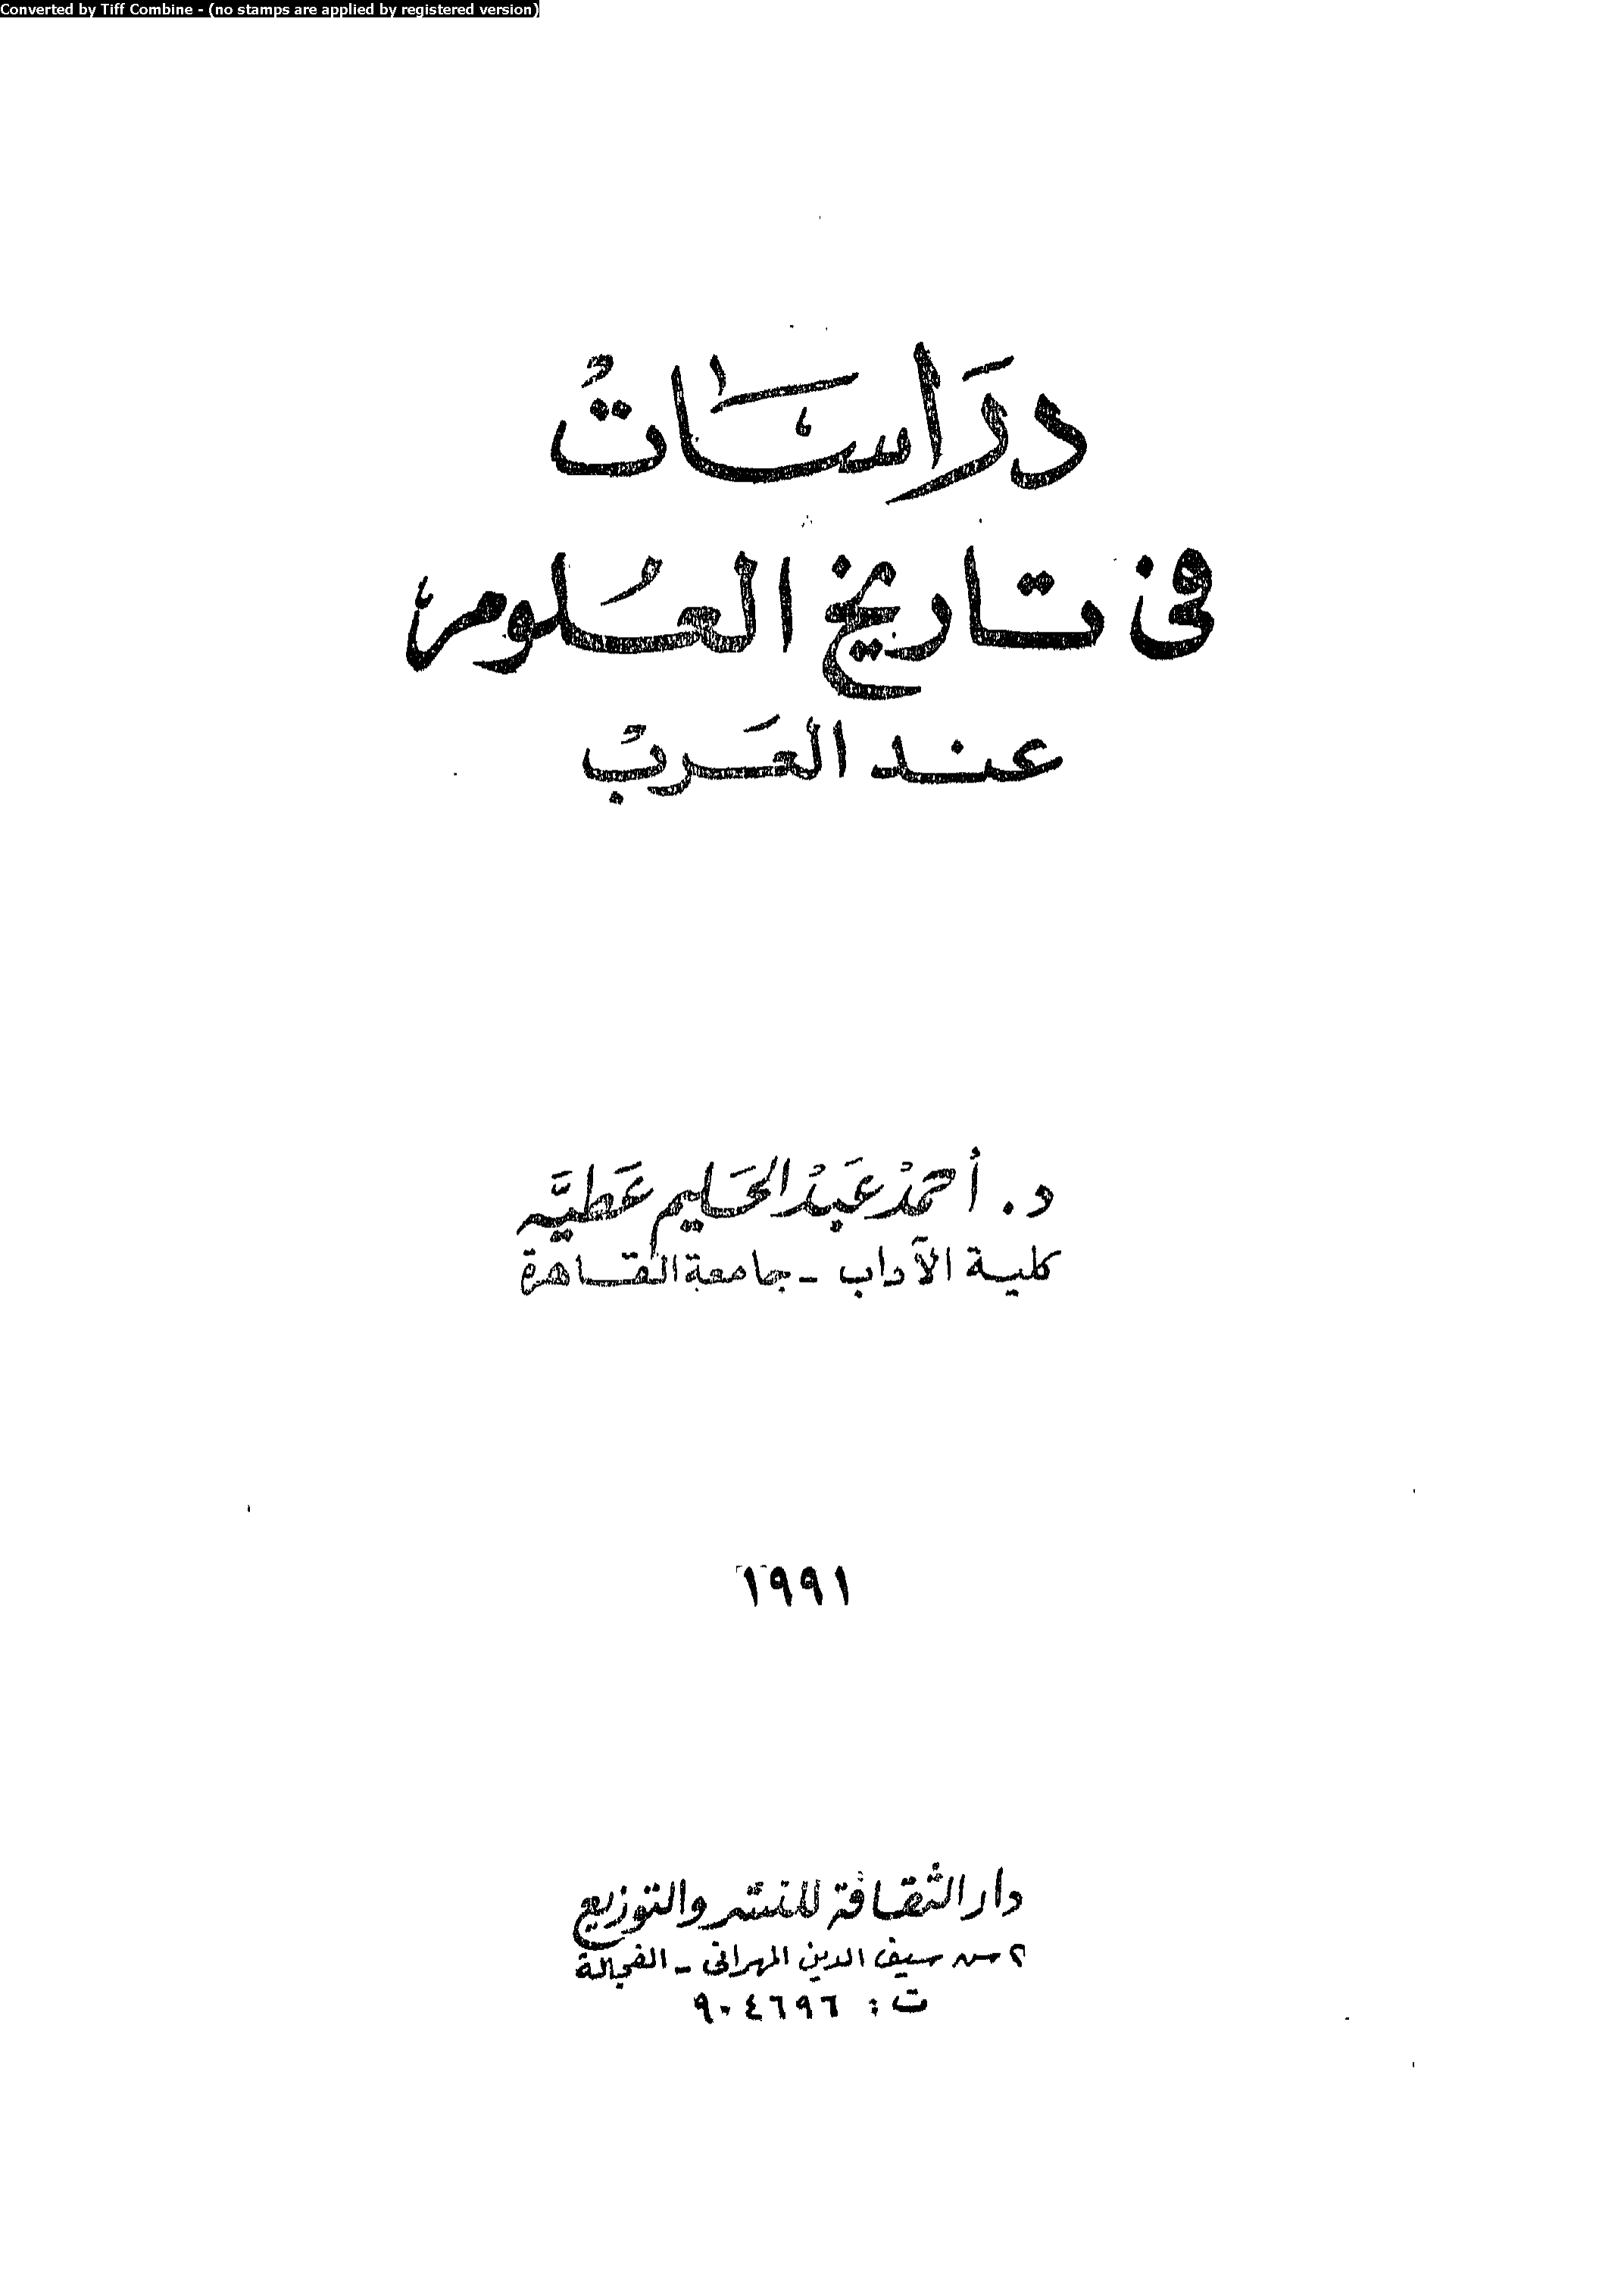 Converted by Tiff Combine - (no stamps are applied by registered version)
دَرَاسَاتُ
فى تاريخ العُلوم
عند العَربْ
د. أحمَدْ عَبْدُ الحَليم عَطيَّه
كلية الآداب - جامعة القاهرة
١٩٩١
دار الثقافة للنشر والتوزيع
٢ ش سيف الدين المهرانى - الفجالة
ت : ٩٠٤٦٩٦